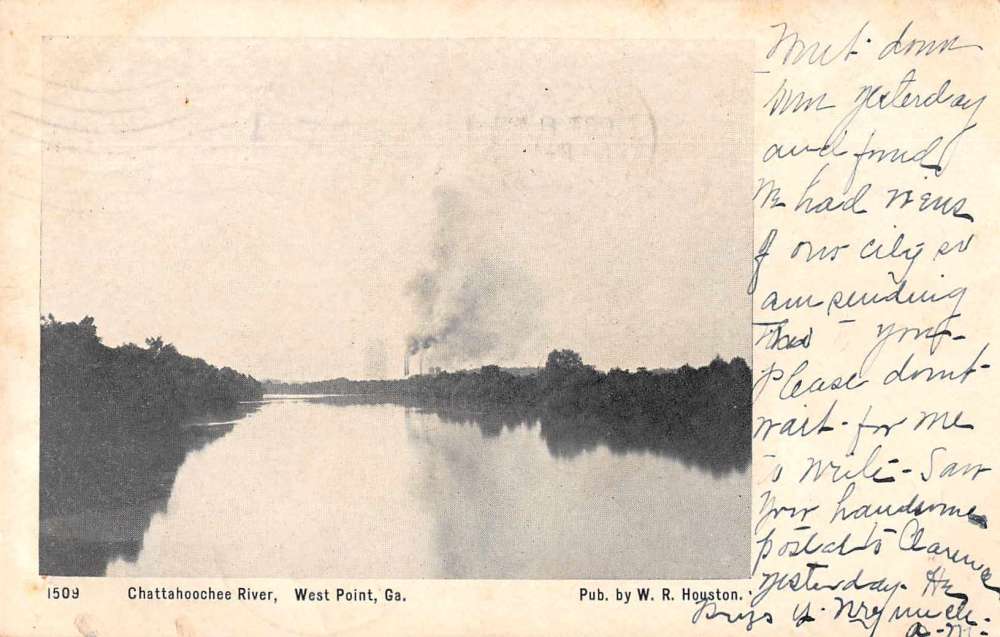 Went down
town yesterday
and found
We had views
of our city so
am sending
this you-
Please don't
wait for me
to write - Saw
your handsome
postal to Clarence
yesterday. He
very much.
1509 Chattahoochee River, West Point, Ga. Pub. by W. R. Houston.